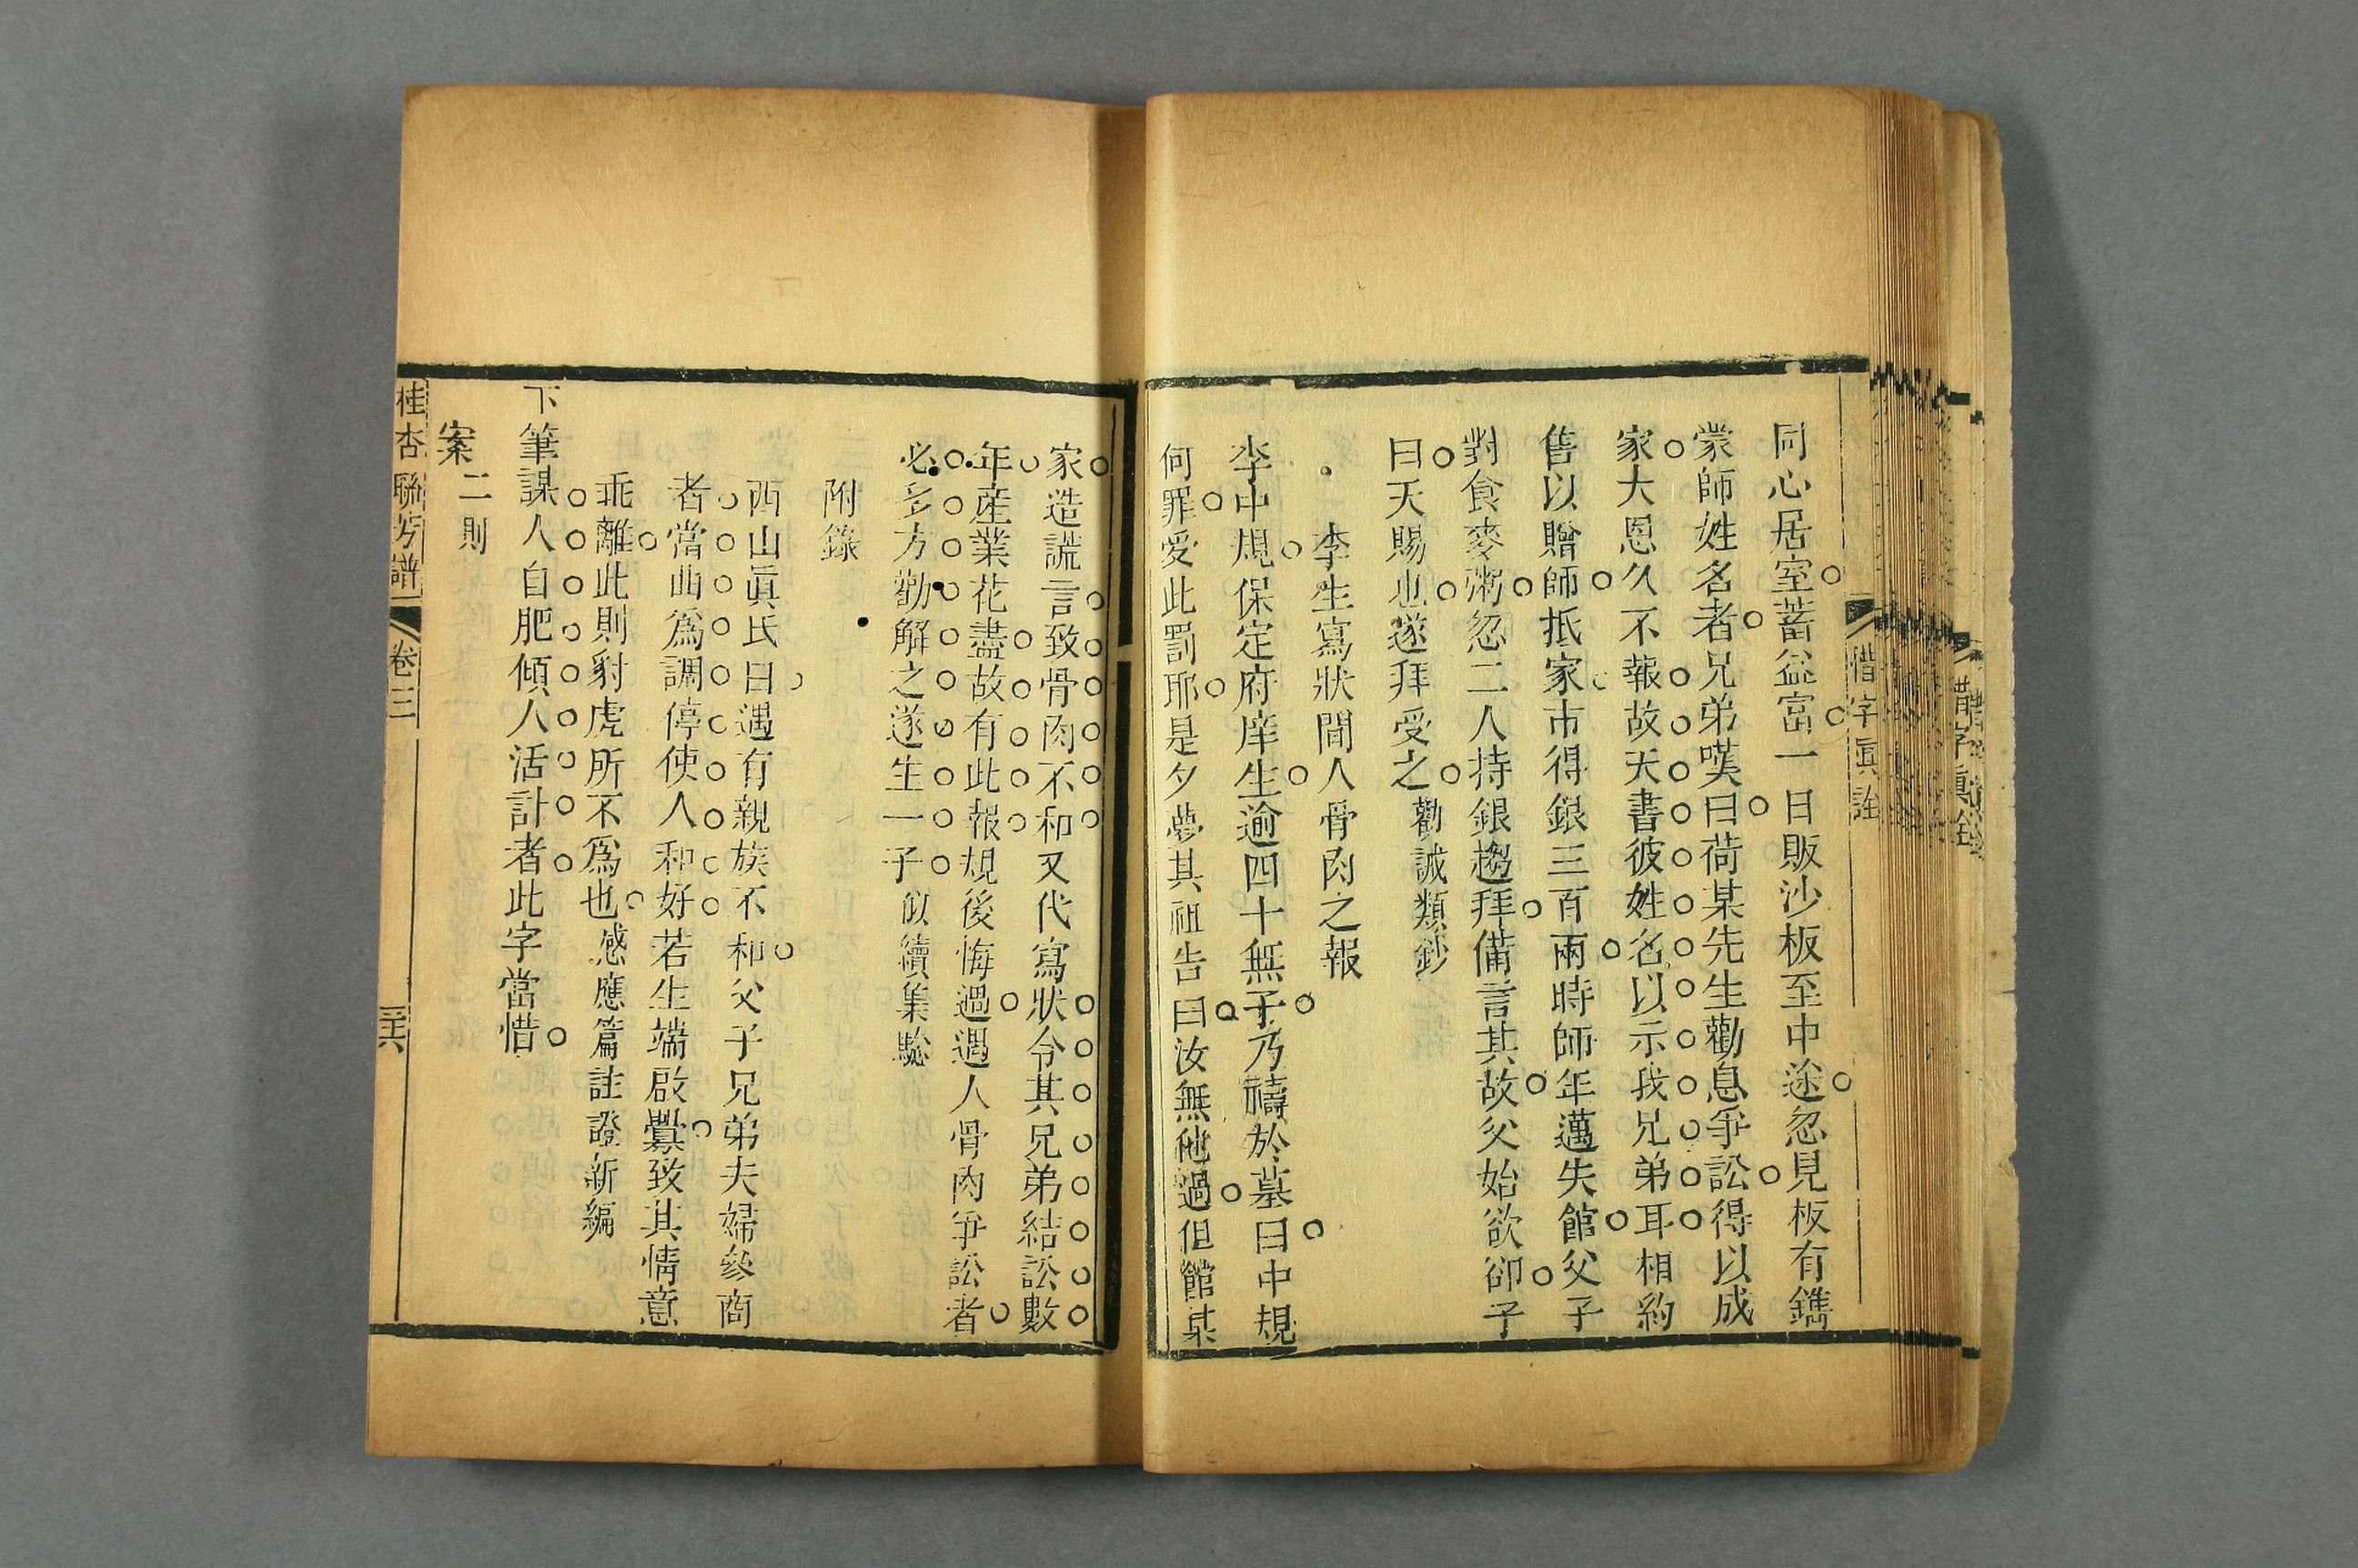 惜字眞詮
同心居室蓄益富一日販沙板至中途忽見板有鐫
蒙師姓名者兄弟嘆曰荷某先生勸息爭訟得以成
家大恩久不報故天書彼姓名以示我兄弟耳相約
售以贈師抵家市得銀三百兩時師年邁失館父子
對食麥粥忽二人持銀趨拜備言其故父始欲卻子
曰天賜也遂拜受之勸誡類鈔
李生寫狀間人骨肉之報
李中規保定府庠生逾四十無子乃禱於墓曰中規
何罪愛此罰耶是夕夢其祖告曰汝無他過但館某
家造謊言致骨肉不和又代寫狀令其兄弟結訟數
年産業花盡故有此報規後悔過遇人骨肉爭訟者
必多方勸解之遂生一子似續集驗
附錄
西山眞氏曰遇有親族不和父子兄弟夫婦參商
者當曲爲調停使人和好若生端啟釁致其情意
乖離此則豺虎所不爲也感應篇註證新編
下筆謀人自肥傾人活計者此字當惜
案二則
桂杏聯芳譜 卷三